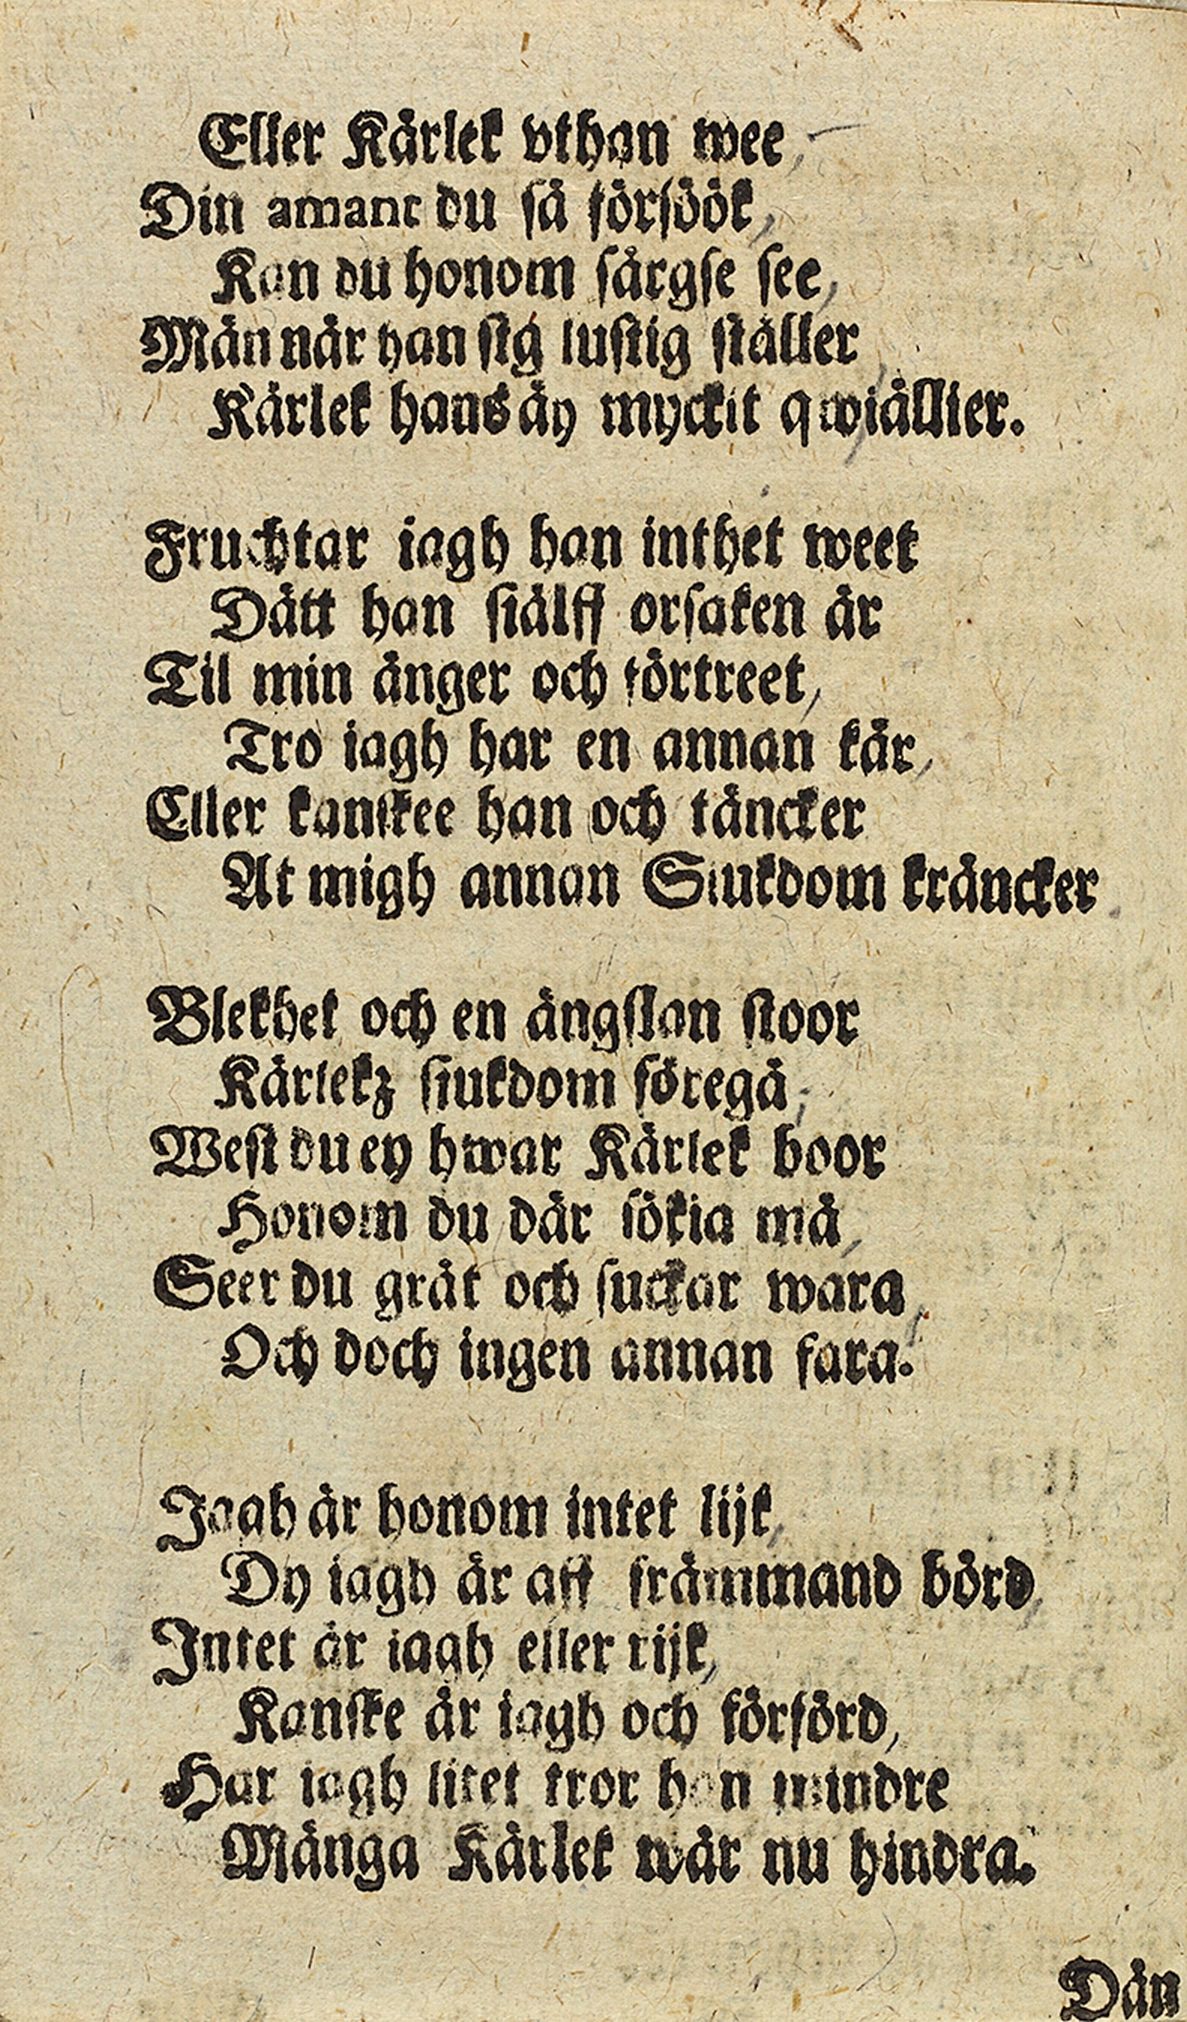 Eller Kärlek vthan wee,
Din amant du så försöök,
Kan du honom särgse see,
Män när han sig lustig ställer
Kärlek hans äy myckit qwiällier.
Fruchtar iagh han inthet weet
Dätt han siälff orsaken är
Til min ånger och förtreet,
Tro iagh har en annan kär,
Eller kanskee han och täncker
At migh annan Siukdom kräncker
Blekhet och en ängslan stoor
Kärlekz siukdom föregå,
West du ey hwar Kärlek boor
Honom du där sökia må,
Seer du gråt och suckar wara
Och doch ingen annan fara.
Jagh är honom intet lijk,
Dy iagh är aff främmand börd,
Intet är iagh eller rijk,
Kanske är iagh och förförd,
Har iagh litet tror han mindre
Många Kärlek wår nu hindra.
Dän